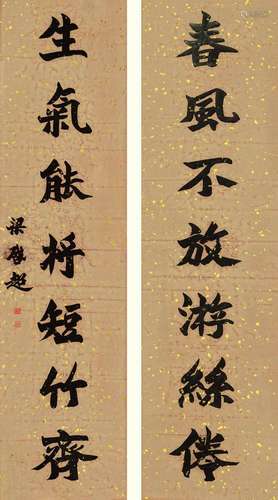 春風不放游絲倦
生氣能將短竹齊
梁啓超